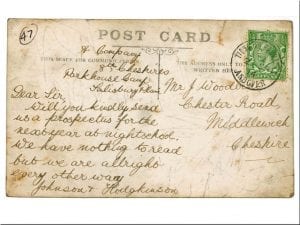 47
POST CARD
THIS SPACE FOR COMMUNICATION
ADDRESS ONLY TO
WRITTEN HERE
A Company
8th Cheshires
Parkhouse Camp
Salisbury
Dear Sir,
Will you kindly send
us a prospectus for the
next year at nightschool.
We have nothing to read
but we are allright
every other way
Johnson & Hodgkinson
Mr J Wood
Chester Road
Middlewich
Cheshire